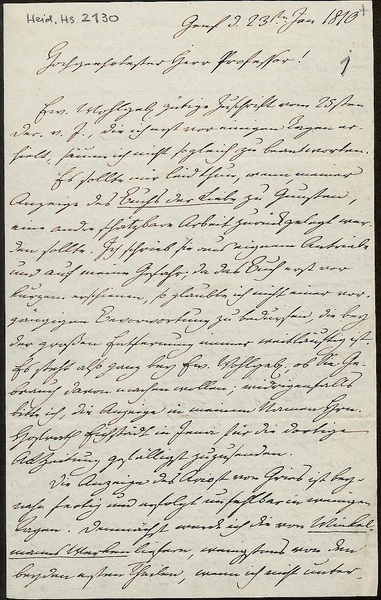 Heid. Hs. 2130
Genf d. 23sten Jan 1810
Hochgeehrtester Herr Professor!
Ew. Wohlgeb. gütige Zuschrift vom 25sten
Dec. v. J., die ich erst vor einigen Tagen er-
hielt, säume ich nicht sogleich zu beantworten.
Es sollte mir leid thun, wenn meiner
Anzeige des Buchs der Liebe zu Gunsten,
eine andre schätzbare Arbeit zurückgelegt wer-
den sollte. Ich schrieb sie aus eignem Antriebe
und auf meine Gefahr; da das Buch erst vor
kurzem erschienen, so glaubte ich nicht einer vor-
gängigen Bevorwortung zu bedürfen, die bey
der großen Entfernung immer weitläuftig ist.
Es steht also ganz bey Ew. Wohlgeb, ob Sie Ge-
brauch davon machen wollen; widrigenfalls
bitte ich, die Anzeige in meinem Namen Hrn.
Hofrath Eichstädt in Jena für die dortige
Zeitung gefälligst zuzusenden.
Die Anzeige des Ariost von Gries ist bey-
nahe fertig und erfolgt unfehlbar in wenigen
Tagen. Demnächst werde ich die von Winkel-
manns Werken liefern, wenigstens von den
beyden ersten Theilen, wenn ich nicht unter-